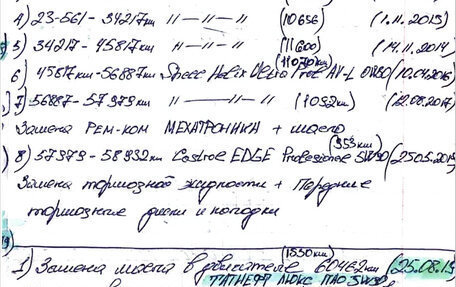 4) 23-561 - 34217км —//—//— (10656) (1.11.2013)
5) 34217 - 45817км //—//—//— (11600) (14.11.2014)
6) 45817км - 56887км Shell Helix Ultra Prof AV-L 0W30 (11070км) (10.04.2016)
7) 56887 - 57979км //—//—//— (1092км) (12.08.2017)
Замена РЕМ-КОМ МЕХАТРОНИКА + масло
8) 57979 - 58932км Castrol EDGE Professional 5W30 (953км) (25.05.201
Замена тормозной жидкости + Передние
тормозные диски и колодки
1) Замена масла в двигателе 60462км (1530км) (25.08.19)
ТАТНЕФТ ЛЮКС ПАО 5W30